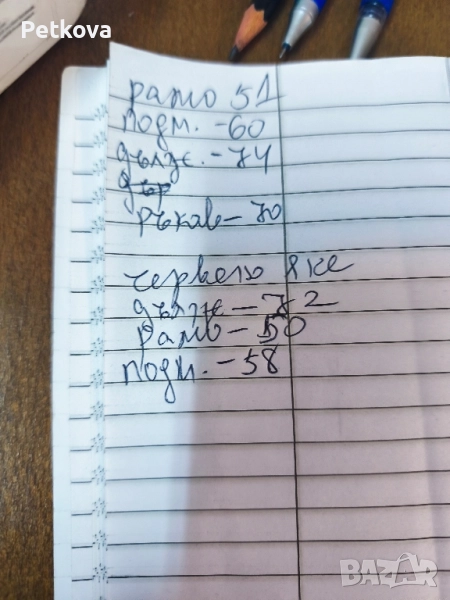 Petkova
рамо 51
подм. - 60
дълж. - 74
ръкав - 70
червено яке
дълж - 72
рамо - 50
подм. - 58
BAZAR